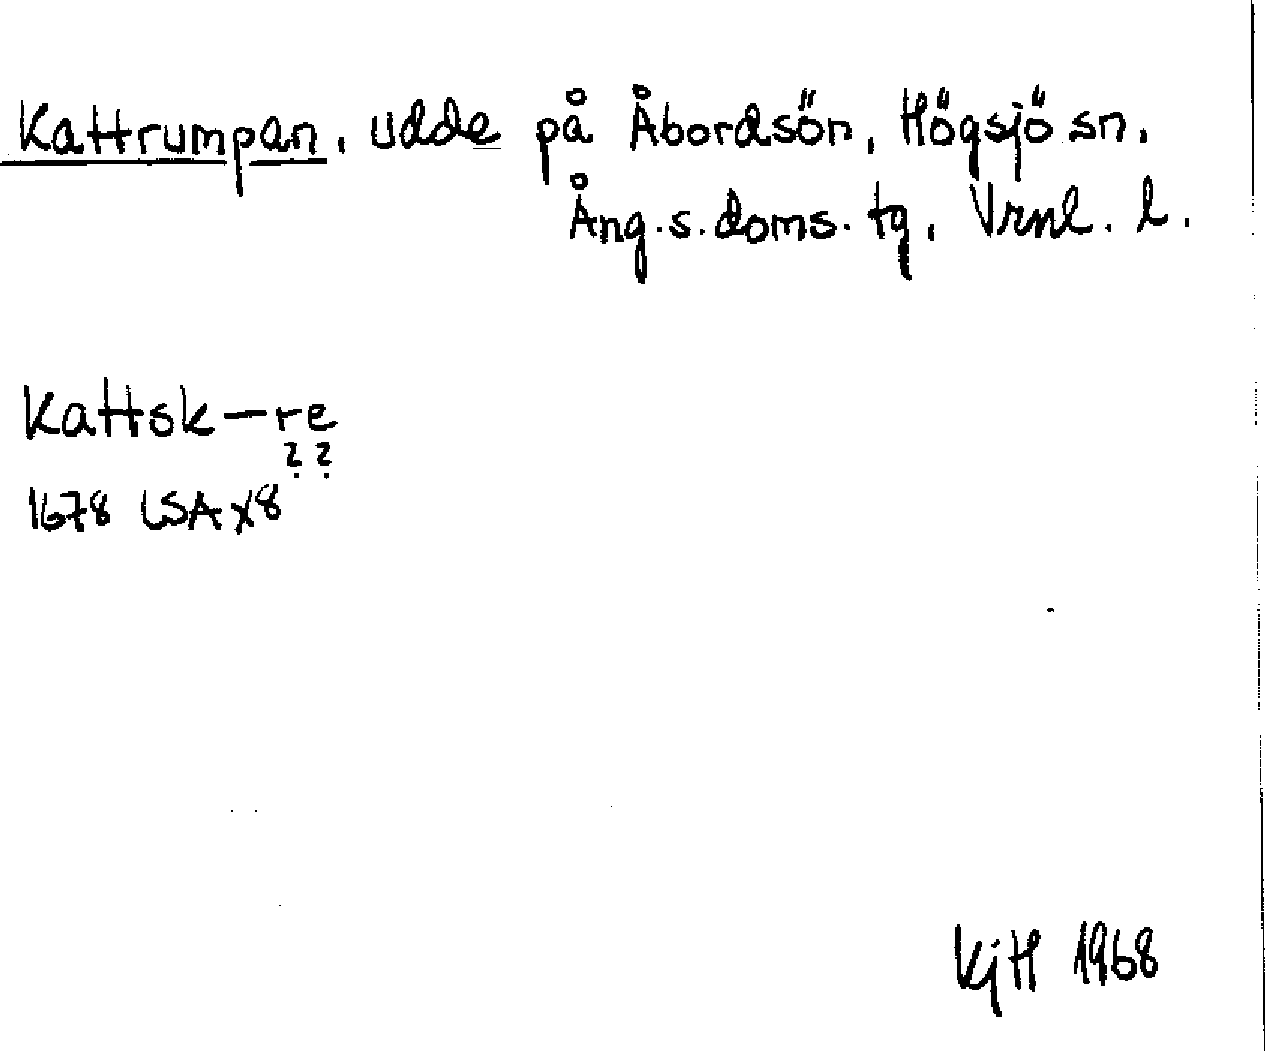 Kattrumpan, udde på Åbordsön, Högsjö sn,
Ång.s.doms.tg, Vrnl. l.
Kattsk—re
? ?
1678 LSA X8
KjH 1968